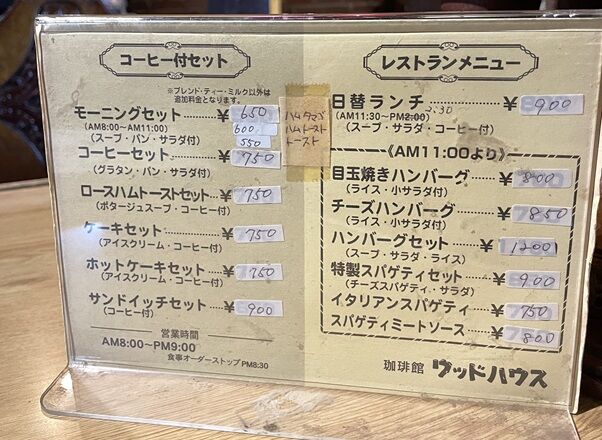 コーヒー付セット
※ブレンド・ティー・ミルク以外は
追加料金となります。
モーニングセット……¥ 650
(AM8:00〜AM11:00) 600
(スープ・パン・サラダ付) 550
ハムタマゴ
ハムトースト
トースト
コーヒーセット………¥ 750
(グラタン・パン・サラダ付)
ロースハムトーストセット…¥ 750
(ポタージュスープ・コーヒー付)
ケーキセット…………¥ 750
(アイスクリーム・コーヒー付)
ホットケーキセット……¥ 750
(アイスクリーム・コーヒー付)
サンドイッチセット……¥ 900
(コーヒー付)
営業時間
AM8:00〜PM9:00
食事オーダーストップPM8:30
レストランメニュー
日替ランチ………¥ 900
(AM11:30〜PM2:00) 2:30
(スープ・サラダ・コーヒー付)
《AM11:00より》
目玉焼きハンバーグ……¥ 800
(ライス・小サラダ付)
チーズハンバーグ………¥ 850
(ライス・小サラダ付)
ハンバーグセット………¥ 1200
(スープ・サラダ・ライス)
特製スパゲティセット……¥ 900
(チーズスパゲティ・サラダ)
イタリアンスパゲティ……¥ 750
スパゲティミートソース……¥ 800
珈琲館 ウッドハウス